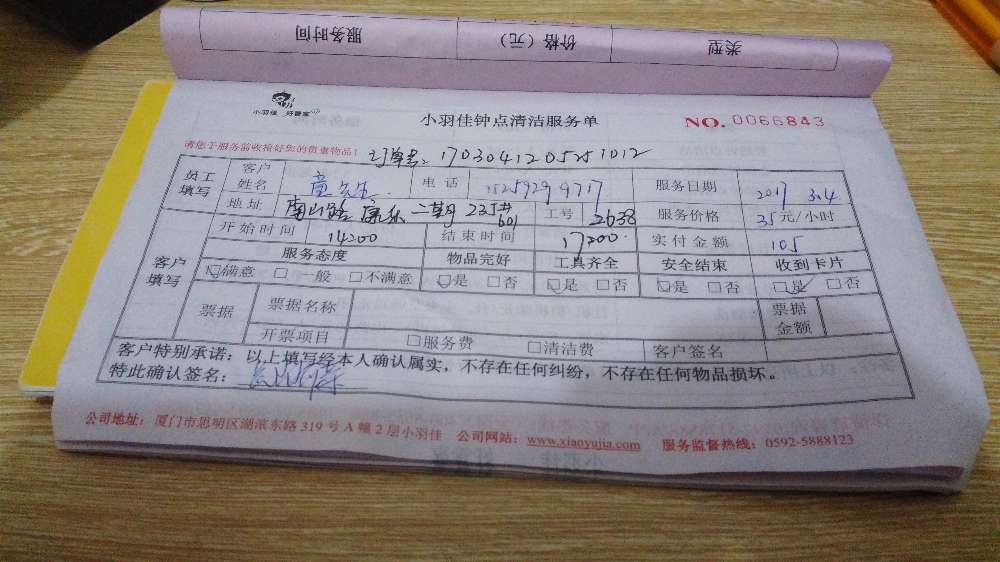 服务时间 价格（元） 类型
小羽佳 好管家
小羽佳钟点清洁服务单
NO. 0066843
请您于服务前收拾好您的贵重物品！ 订单号：1703041205251012
员工填写 客户姓名 童先生 电话 服务日期 2017 3.4
地址 南山路 二期 235# 601 工号 2638 服务价格 35元/小时
客户填写 开始时间 14:00 结束时间 17:00 实付金额 105
服务态度 物品完好 工具齐全 安全结束 收到卡片
☑满意 □一般 □不满意 ☑是 □否 ☑是 □否 ☑是 □否 ☑是 □否
票据 票据名称 票据金额
开票项目 □服务费 □清洁费 客户签名
客户特别承诺：以上填写经本人确认属实，不存在任何纠纷，不存在任何物品损坏。
特此确认签名：
公司地址：厦门市思明区湖滨东路319号A幢2层小羽佳 公司网站：www.xiaoyujia.com 服务监督热线：0592-5888123